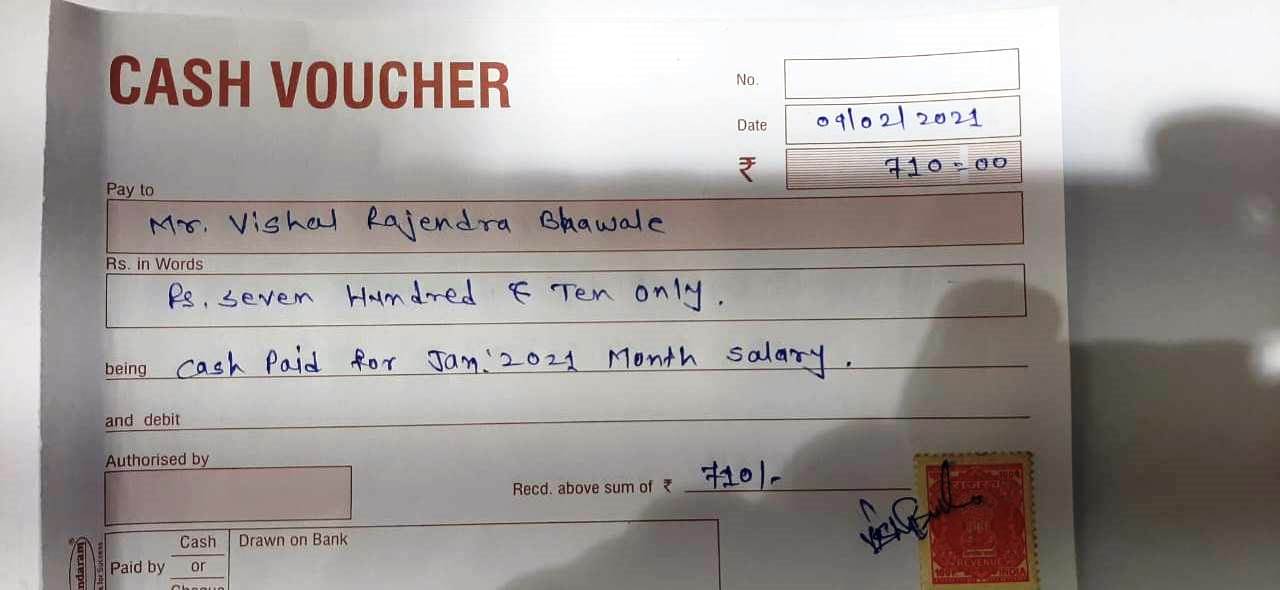 CASH VOUCHER
No.
Date 09/02/2021
₹ 710=00
Pay to
Mr. Vishal Rajendra Bhawale
Rs. in Words
Rs. Seven Hundred & Ten only.
being Cash Paid for Jan.'2021 Month Salary.
and debit
Authorised by
Recd. above sum of ₹ 710/-
राजस्व
REVENUE
INDIA
Cash
Drawn on Bank
Paid by or
Cheque
ndaram®
for Success